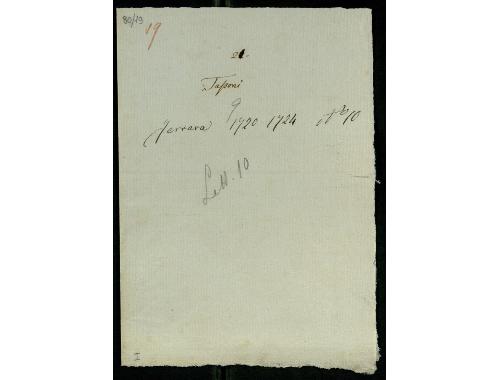 80/19
19
21.
Tassoni
9
Ferrara 1720 1724 N° 10
Lett. 10
I